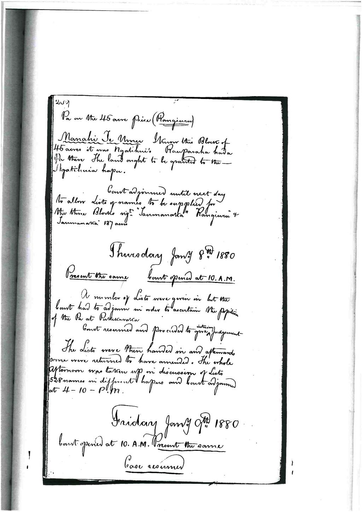 Pa on the 46 acre piece (Rangiuru)
Manahi Te I know this Block of
46 acres it was Ngatihuia's Rauparaha had a
Pa there The land ought to be granted to the
Ngatihuia hapu.
Court adjourned until next day
to allow Lists of names to be supplied for
the three Blocks "Taumanuka" "Rangiuru" &
Taumanuka 187 acres
Thursday Jany 8th 1880
Present the same Court opened at 10. A.M.
A number of Lists were given in but the
Court had to adjourn in order to ascertain the
of the Pa at
Court resumed and proceeded to give Judgment
The Lists were then handed in and afterwards
some were returned to have amended. The whole
afternoon was taken up in discussion of Lists
528 names in different hapus and Court adjourned
at 4-10-P.M.
Friday Jany 9th 1880
Court opened at 10. A.M. Present the same
Case resumed